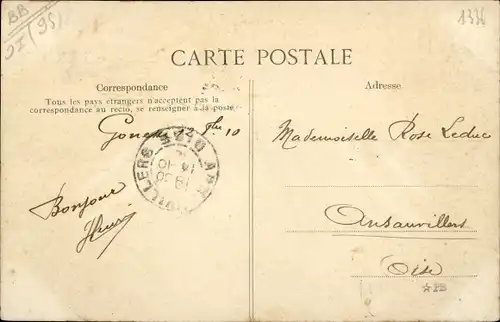 BB
95
1336
CARTE POSTALE
Correspondance
Tous les pays étrangers n'acceptent pas la
correspondance au recto, se renseigner à la poste
Adresse
Gonesse 13 10
ANSAUVILLERS
14-10
19 30
Bonjour
Henri
Mademoiselle Rose Leduc
Ansauvillers
Oise